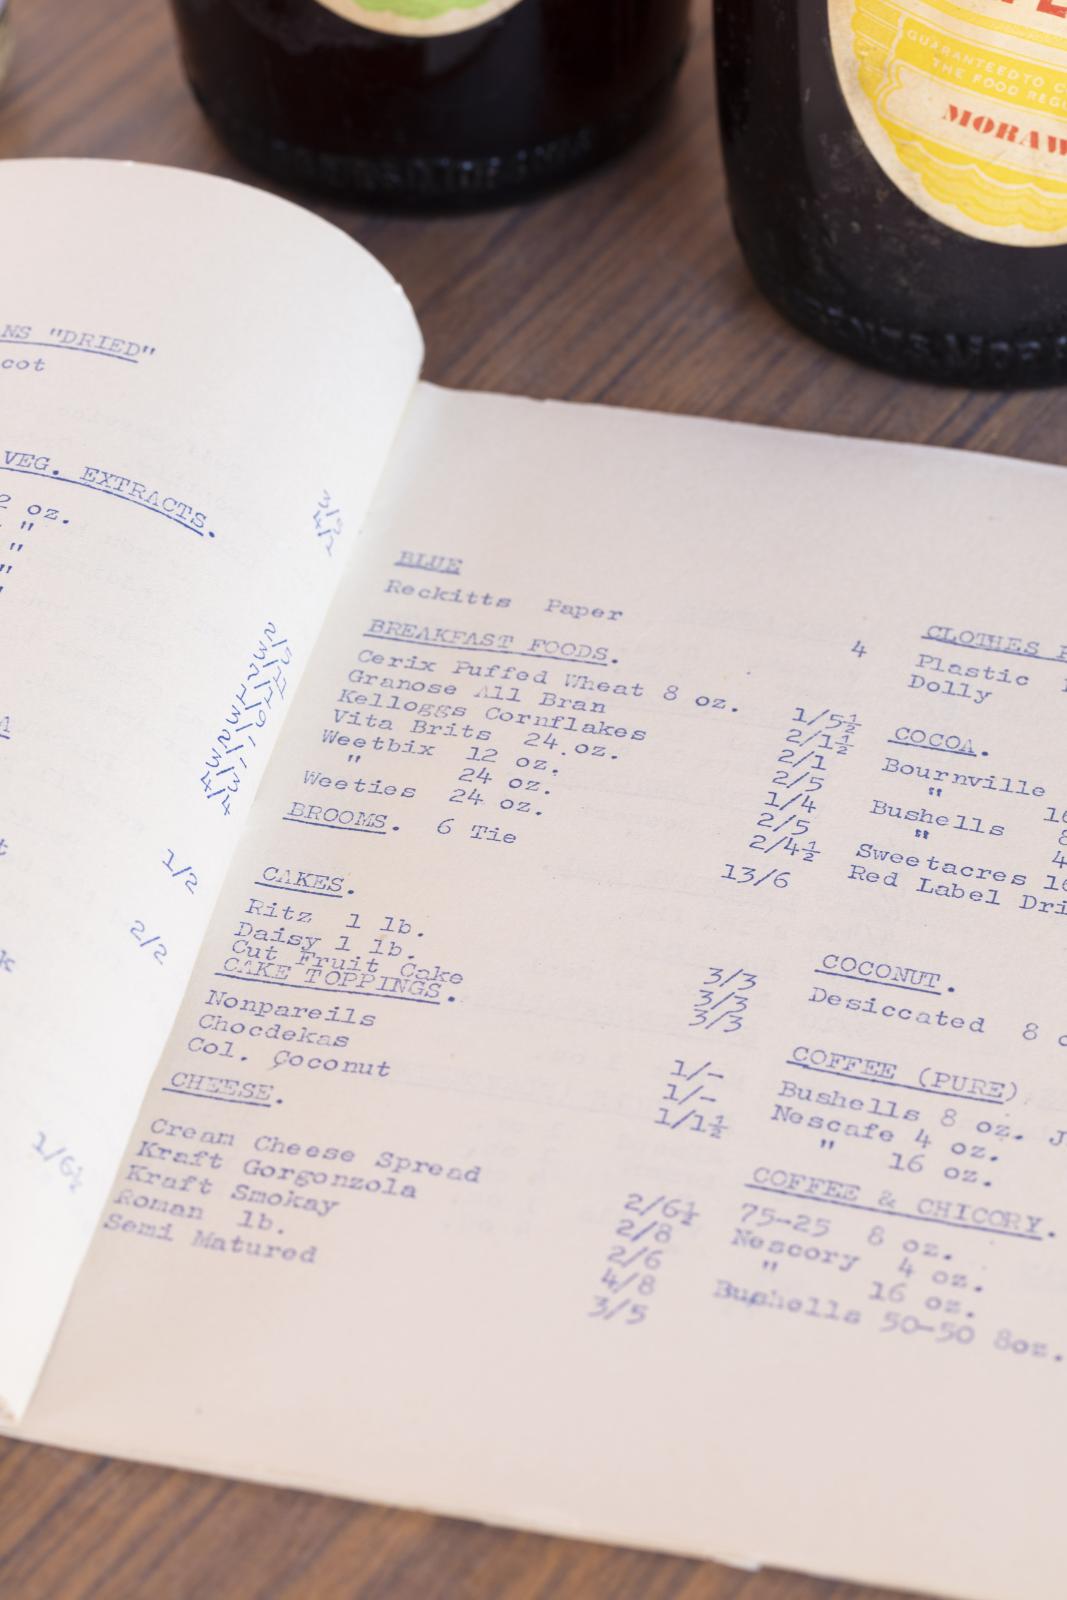 GUARANTEED TO
THE FOOD REGU
MORAW
NS "DRIED"
cot
VEG. EXTRACTS.
2 oz.
"
"
"
"
1/2
2/2
1/6½
BLUE
Reckitts Paper 4
BREAKFAST FOODS.
Cerix Puffed Wheat 8 oz. 1/5½
Granose All Bran 2/1½
Kelloggs Cornflakes 2/1
Vita Brits 24.oz. 2/5
Weetbix 12 oz. 1/4
" 24 oz. 2/5
Weeties 24 oz. 2/4½
BROOMS. 6 Tie 13/6
CAKES.
Ritz 1 lb. 3/3
Daisy 1 lb. 3/3
Cut Fruit Cake 3/3
CAKE TOPPINGS.
Nonpareils 1/-
Chocdekas 1/-
Col. Coconut 1/1½
CHEESE.
Cream Cheese Spread 2/6½
Kraft Gorgonzola 2/8
Kraft Smokay 2/6
Roman lb. 4/8
Semi Matured 3/5
CLOTHES
Plastic
Dolly
COCOA.
Bournville
" 16
Bushells 8
" 4
Sweetacres 16
Red Label Dri
COCONUT.
Desiccated 8 o
COFFEE (PURE)
Bushells 8 oz. J
Nescafe 4 oz.
" 16 oz.
COFFEE & CHICORY.
75-25 8 oz.
Nescory 4 oz.
" 16 oz.
Bushells 50-50 8oz.